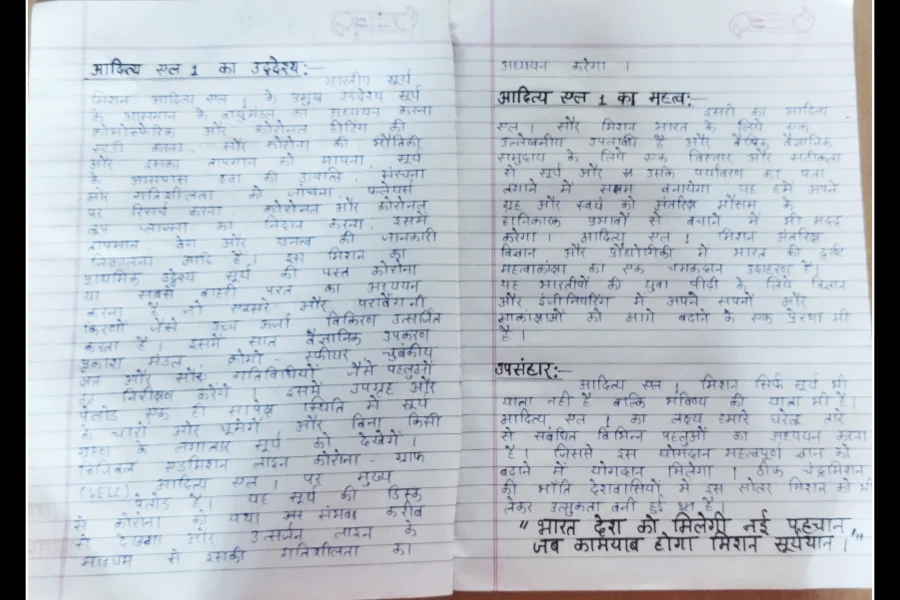 आदित्य एल 1 का उद्देश्य:-
भारतीय सूर्य
मिशन आदित्य एल 1 के प्रमुख उद्देश्य सूर्य
के आसमान के वायुमंडल का अध्ययन करना
क्रोमोस्फेरिक और कोरोनल हीटिंग की
स्टडी करना, सौर कोरोना की भौतिकी
और इसका तापमान को मापना, सूर्य
के आसपास हवा की उत्पत्ति, संरचना
और गतिशीलता को जांचना, फ्लेयर्स
पर रिसर्च करना, कोरोनल और कोरोनल
लूप प्लाज्मा का निदान करना, इसमें
तापमान, वेग और घनत्व की जानकारी
निकालना आदि है। इस मिशन का
प्राथमिक उद्देश्य सूर्य की परत कोरोना
या सबसे बाहरी परत का अध्ययन
करना है जो एक्सरे और पराबैंगनी
किरणों जैसे उच्च ऊर्जा विकिरण उत्सर्जित
करता है। इसमें सात वैज्ञानिक उपकरण
प्रकाश मंडल, क्रोमो-स्फीयर चुंबकीय
क्षेत्र और सौर गतिविधियों जैसे पहलुओं
का निरीक्षण करेंगे। इसमें उपग्रह और
पेलोड एक ही सापेक्ष स्थिति में सूर्य
के चारो ओर घूमेंगे और बिना किसी
ग्रहण के लगातार सूर्य को देखेगें।
विजिबल एडमिशन लाइन कोरोना-ग्राफ
(VELC) आदित्य एल 1 पर मुख्य
पेलोड है। यह सूर्य की डिस्क
से कोरोना को यथा संभव करीब
से देखेगा और उत्सर्जन लाइन के
माध्यम से इसकी गतिशीलता का
अध्ययन करेगा।
आदित्य एल 1 का महत्व:-
इसरो का आदित्य
एल 1 सौर मिशन भारत के लिये एक
उल्लेखनीय उपलब्धि है और वैश्विक वैज्ञानिक
समुदाय के लिये एक विस्तार और सटीकता
से सूर्य और उसके पर्यावरण का पता
लगाने में सक्षम बनायेगा यह हमें अपने
ग्रह और स्वयं को अंतरिक्ष मौसम के
हानिकारक प्रभावों से बचाने में भी मदद
करेगा। आदित्य एल 1 मिशन अंतरिक्ष
विज्ञान और प्रौद्योगिकी में भारत की दृष्टि
महत्वाकांक्षा का एक चमकदार उदाहरण है।
यह भारतीयों की युवा पीढ़ी के लिये विज्ञान
और इंजीनियरिंग में अपने सपनों और
आकांक्षाओं को आगे बढ़ाने के एक प्रेरणा भी
है।
उपसंहार:-
आदित्य एल 1 मिशन सिर्फ सूर्य की
यात्रा नही है बल्कि भविष्य की यात्रा भी है।
आदित्य एल 1 का लक्ष्य हमारे घरेलू तारे
से संबंधित विभिन्न पहलुओं का अध्ययन करना
है। जिससे इस योगदान महत्वपूर्ण ज्ञान को
बढ़ाने में योगदान मिलेगा। ठीक चंद्रमिशन
की भाँति देशवासियों में इस सोलर मिशन को भी
लेकर उत्सुकता बनी हुई है
"भारत देश को मिलेगी नई पहचान,
जब कामयाब होगा मिशन सूर्ययान।"